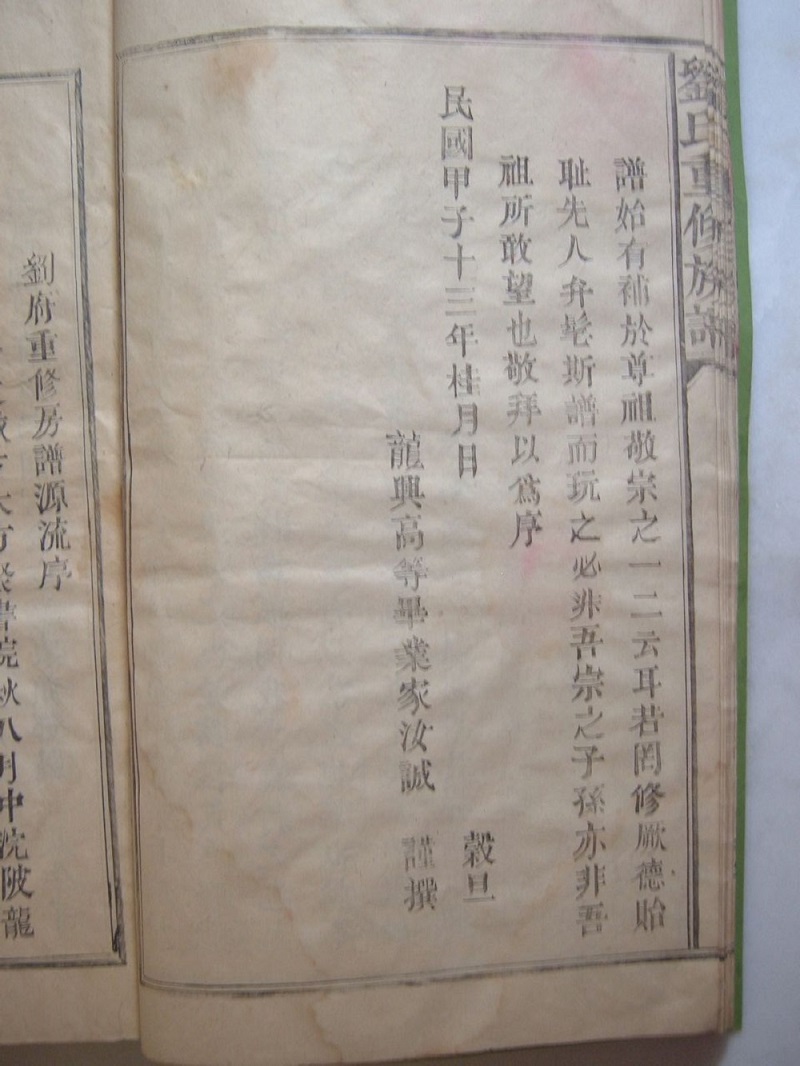 劉氏重修族譜
譜始有補於尊祖敬宗之一二云耳若罔修厥德貽
耻先人弁髦斯譜而玩之必非吾宗之子孫亦非吾
祖所敢望也敬拜以為序
民國甲子十三年桂月日 穀旦
龍興高等畢業家汝誠 謹撰
劉府重修房譜源流序
書院秋八月中沈陂龍